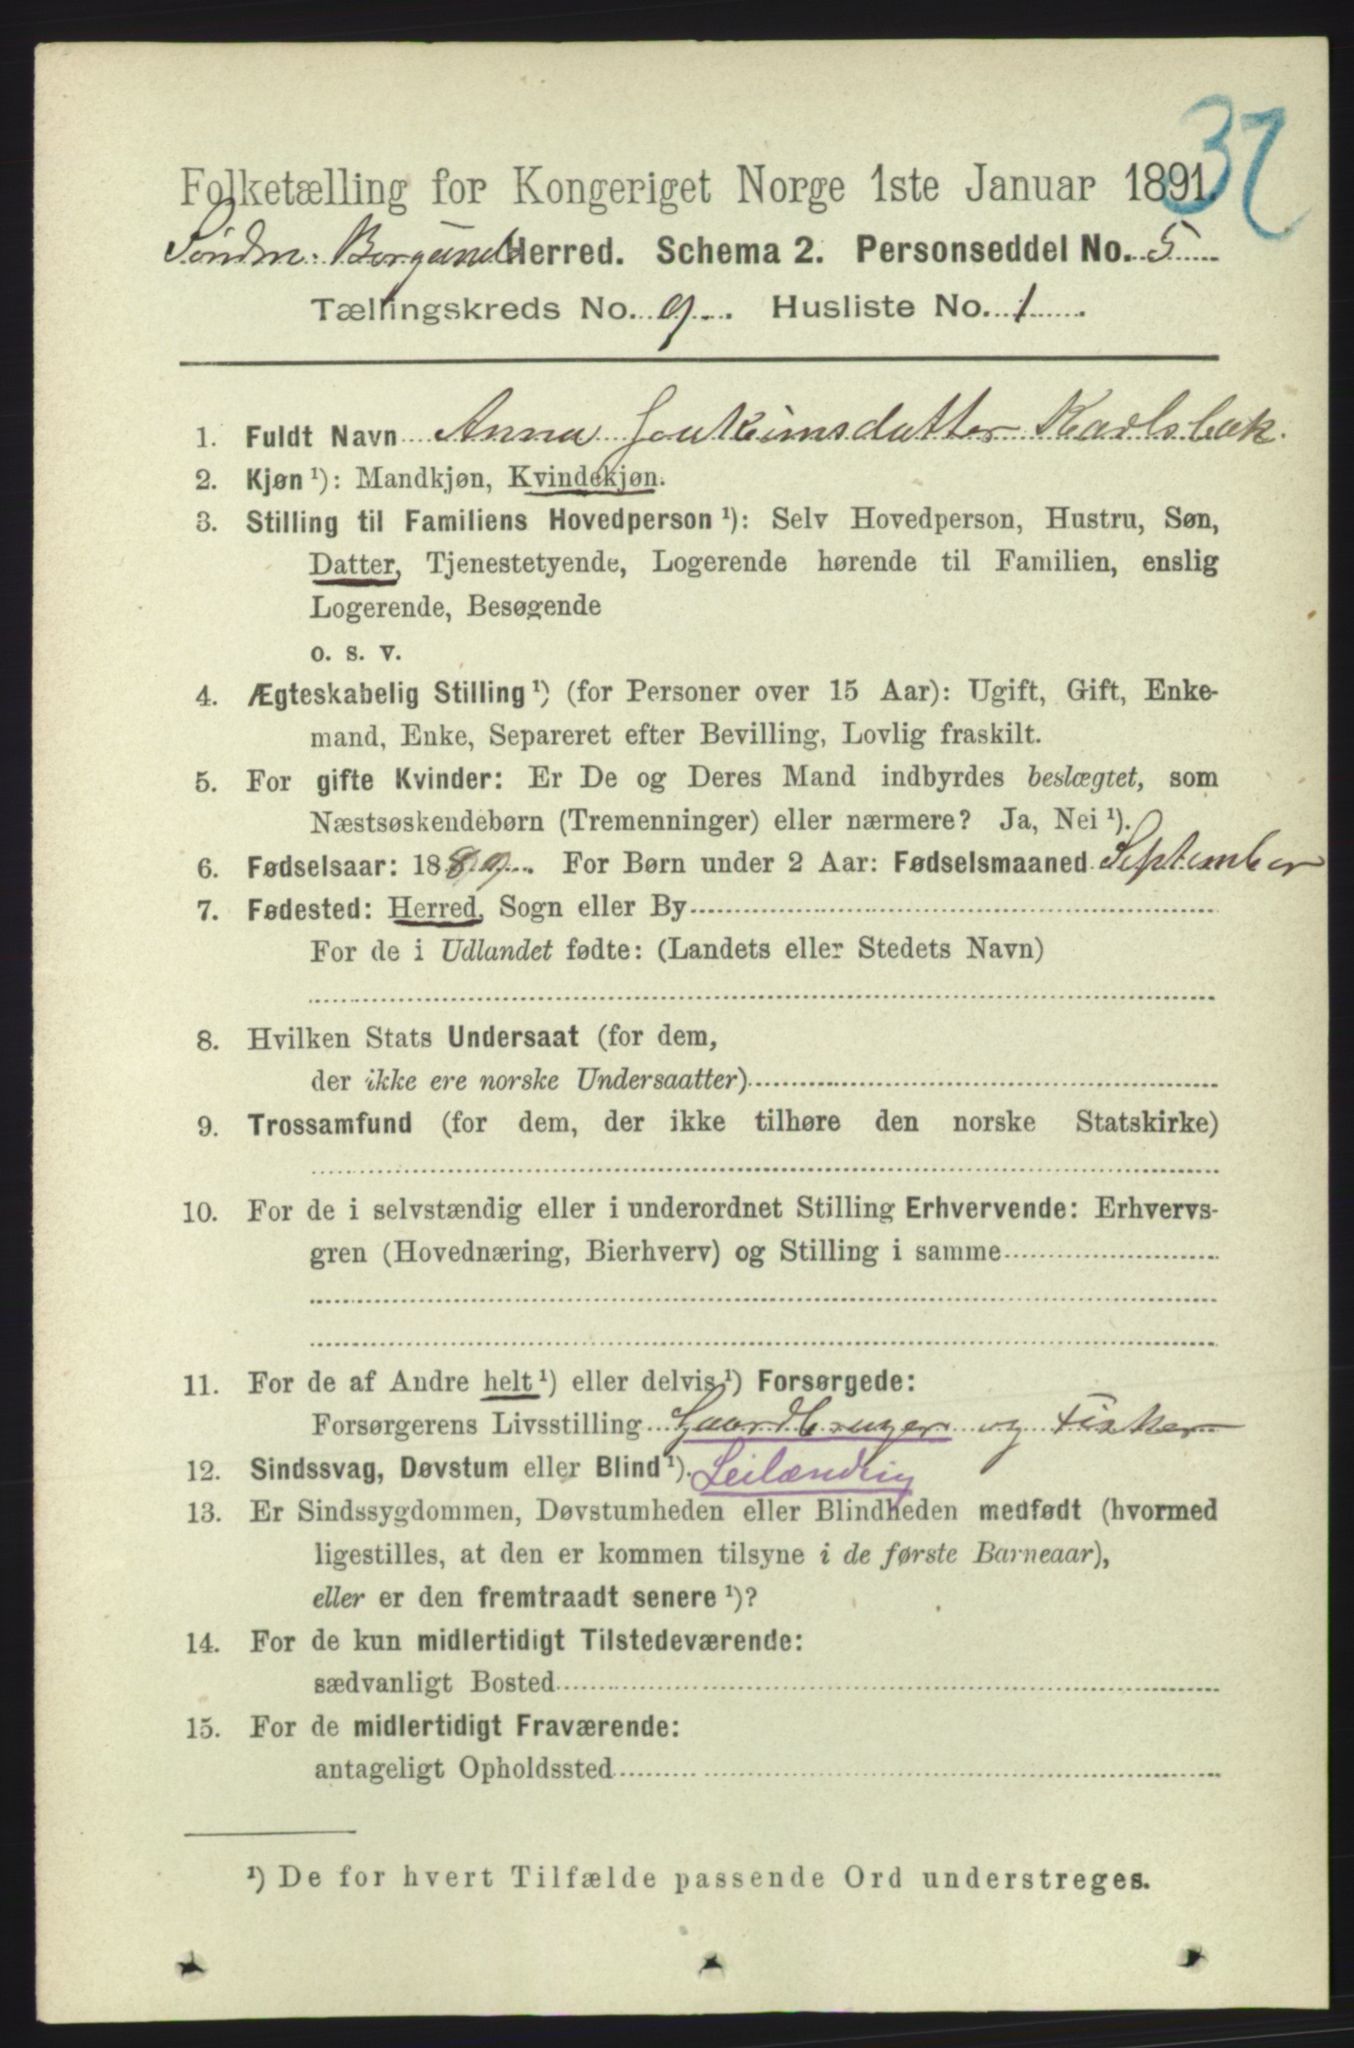 32
Folketælling for Kongeriget Norge 1ste Januar 1891.
Søndm. Borgund Herred. Schema 2. Personseddel No. 5
Tællingskreds No. 9. Husliste No. 1.
1. Fuldt Navn Anna Joakimsdatter Karlsbak.
2. Kjøn ¹): Mandkjøn, Kvindekjøn.
3. Stilling til Familiens Hovedperson ¹): Selv Hovedperson, Hustru, Søn,
Datter, Tjenestetyende, Logerende hørende til Familien, enslig
Logerende, Besøgende
o. s. v.
4. Ægteskabelig Stilling ¹) (for Personer over 15 Aar): Ugift, Gift, Enke-
mand, Enke, Separeret efter Bevilling, Lovlig fraskilt.
5. For gifte Kvinder: Er De og Deres Mand indbyrdes beslægtet, som
Næstsøskendebørn (Tremenninger) eller nærmere? Ja, Nei ¹).
6. Fødselsaar: 1889. For Børn under 2 Aar: Fødselsmaaned September
7. Fødested: Herred, Sogn eller By
For de i Udlandet fødte: (Landets eller Stedets Navn)
8. Hvilken Stats Undersaat (for dem,
der ikke ere norske Undersaatter)
9. Trossamfund (for dem, der ikke tilhøre den norske Statskirke)
10. For de i selvstændig eller i underordnet Stilling Erhvervende: Erhvervs-
gren (Hovednæring, Bierhverv) og Stilling i samme
11. For de af Andre helt ¹) eller delvis ¹) Forsørgede:
Forsørgerens Livsstilling Gaardbruger og Fisker
12. Sindssvag, Døvstum eller Blind ¹). Leilænding
13. Er Sindssygdommen, Døvstumheden eller Blindheden medfødt (hvormed
ligestilles, at den er kommen tilsyne i de første Barneaar),
eller er den fremtraadt senere ¹)?
14. For de kun midlertidigt Tilstedeværende:
sædvanligt Bosted
15. For de midlertidigt Fraværende:
antageligt Opholdssted
¹) De for hvert Tilfælde passende Ord understreges.